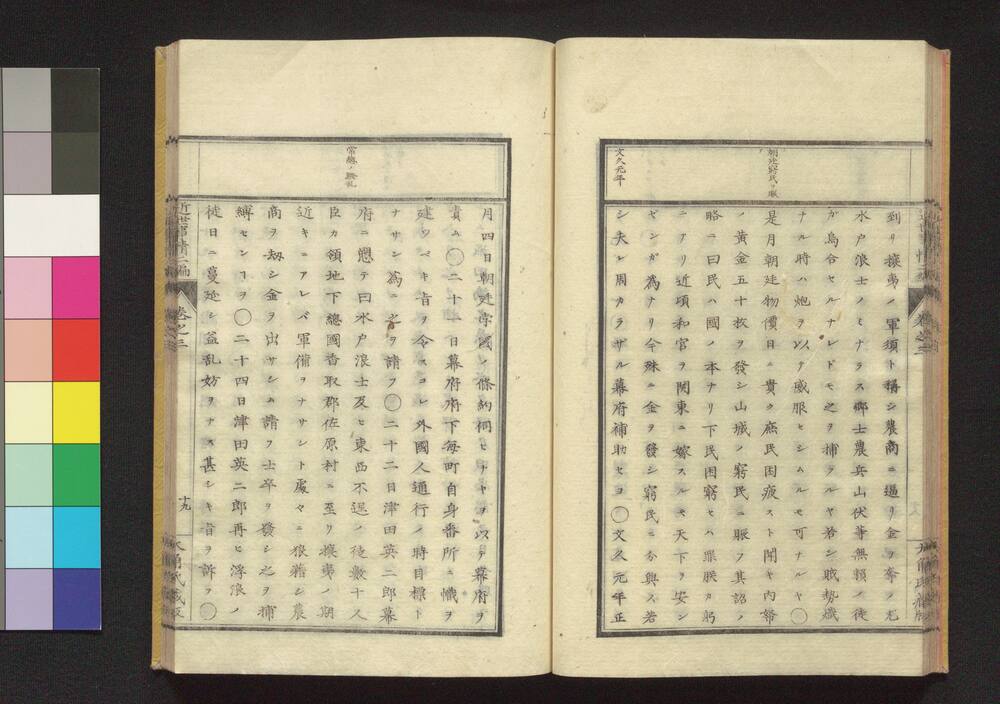 朝廷窮民ヲ賑
文久元年
到リ攘夷ノ軍須ト稱シ農商ニ逼リ金ヲ奪ノ尤
水戸浪士ノミナラス郷士農兵山伏等無頼ノ徒
ガ烏合セルナレドモ之ヲ捕ラルヤ若シ賊勢熾
ナル時ハ炮ヲ以テ威服セシムルモ可ナルヤ〇
是月朝廷物價日ニ貴ク庶民困疲スト聞キ内帑
ノ黄金五十枚ヲ發シ山城ノ窮民ニ賑フ其詔ノ
略ニ曰民ハ國ノ本ナリ下民困窮セハ罪朕カ躬
ニアリ近頃和宮ヲ関東ニ嫁スルモ天下ヲ安ン
ゼンガ為ナリ今殊ニ金ヲ發シ窮民ニ分與ス若
シ夫レ周カラザル幕府補助セヨ〇文久元年正
常總ノ騒乱
月四日朝廷字國ノ條約伺ヒナキヲ以テ幕府ヲ
責ム〇二十一日幕府府下毎町自身番所ニ幟ヲ
建ツベキ旨ヲ令スコレ外國人通行ノ時目標ト
ナサン為ニ之ヲ請フ〇二十二日津田英二郎幕
府ニ愬テ曰水戸浪士及ヒ東西不逞ノ徒数十人
臣カ領地下總國香取郡佐原村ニ至リ攘夷ノ期
近キニアレバ軍備ヲナサント處々ニ狼藉シ農
商ヲ劫シ金ヲ出サシム請フ士卒ヲ發シ之ヲ捕
縛センコヲ〇二十四日津田英二郎再ヒ浮浪ノ
徒日ニ蔓延シ益乱妨ヲナス甚シキ旨ヲ訴フ〇
近世事情二編
巻之三
十九